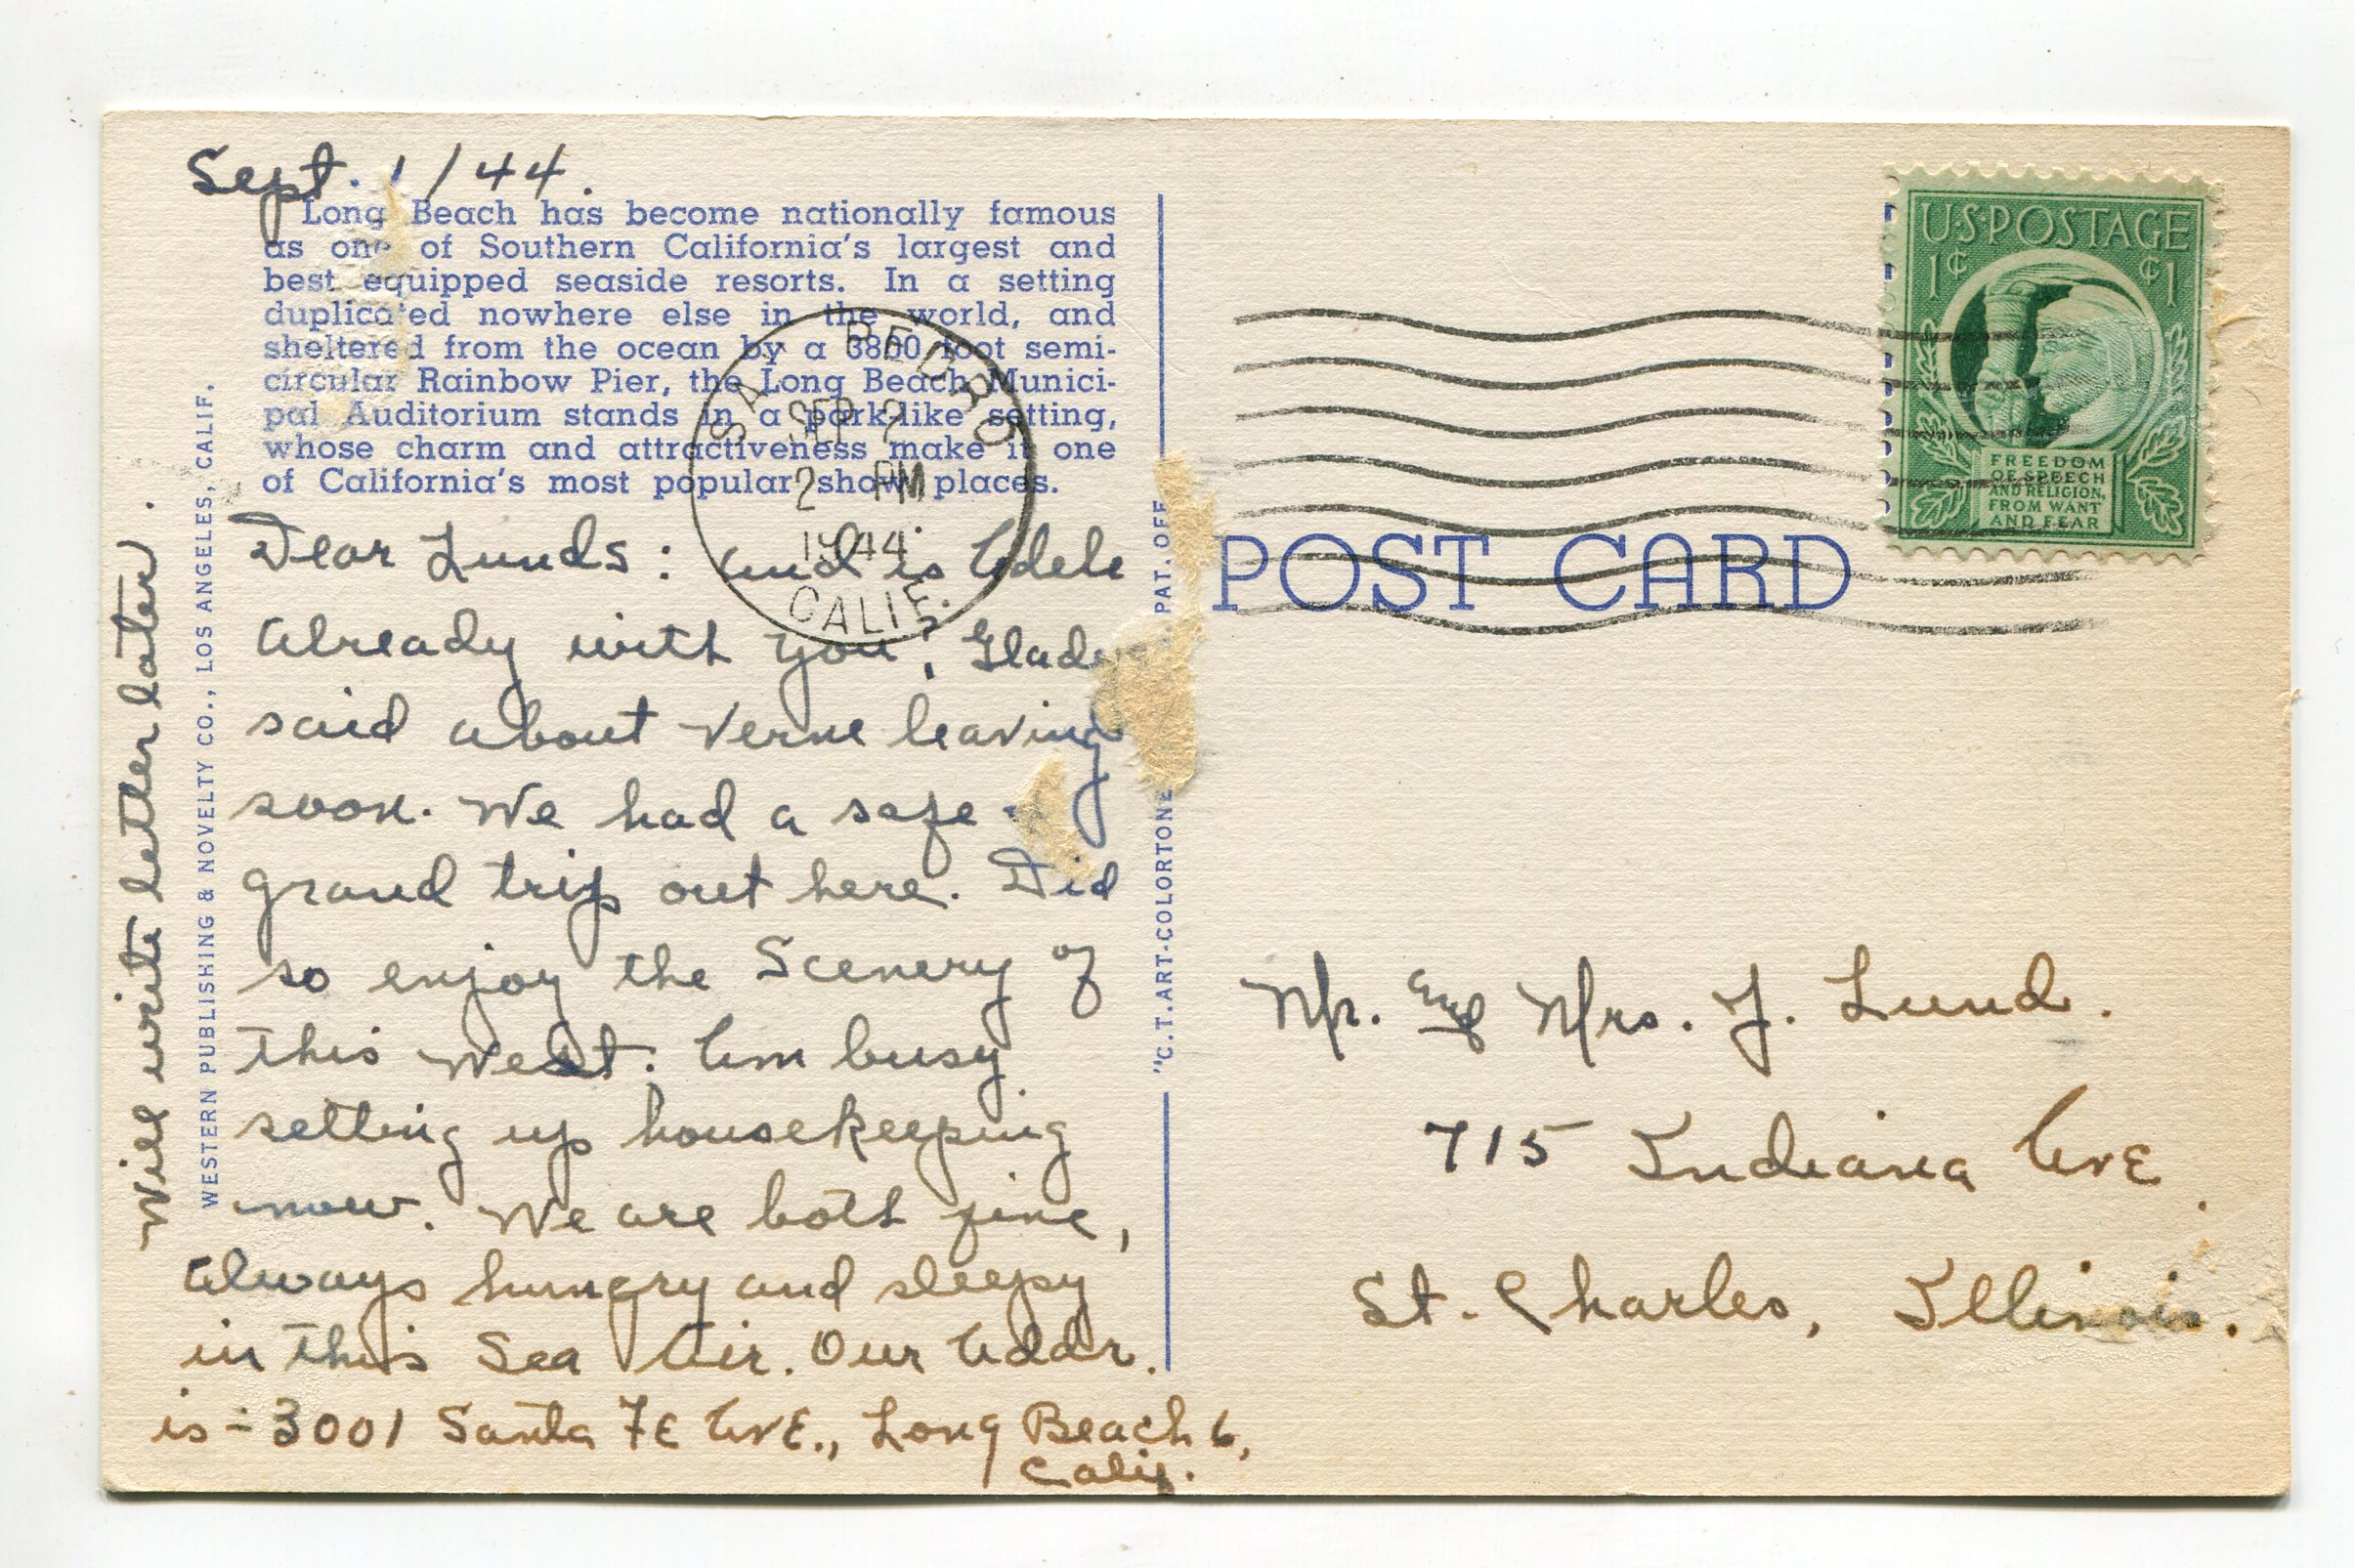 Sept. 1/44.
Long Beach has become nationally famous
as one of Southern California's largest and
best equipped seaside resorts. In a setting
duplicated nowhere else in the world, and
sheltered from the ocean by a 3800 foot semi-
circular Rainbow Pier, the Long Beach Munici-
pal Auditorium stands in a park-like setting,
whose charm and attractiveness make it one
of California's most popular show places.
Dear Lunds: and is Adele
already with you? Gladys
said about Verne leaving
soon. We had a safe
grand trip out here. Did
so enjoy the Scenery of
this West. Am busy
setting up housekeeping
now. We are both fine,
always hungry and sleepy
in this Sea Air. Our Addr.
is - 3001 Santa Fe Ave., Long Beach 6,
Calif.
Will write letter later.
WESTERN PUBLISHING & NOVELTY CO., LOS ANGELES, CALIF.
SAN PEDRO
SEP 2
2 PM
1944
CALIF.
"C.T. ART-COLORTONE
PAT. OFF.
POST CARD
U.S. POSTAGE
1¢ ¢1
FREEDOM
OF SPEECH
AND RELIGION,
FROM WANT
AND FEAR
Mr. and Mrs. J. Lund.
715 Indiana Ave.
St. Charles, Illinois.